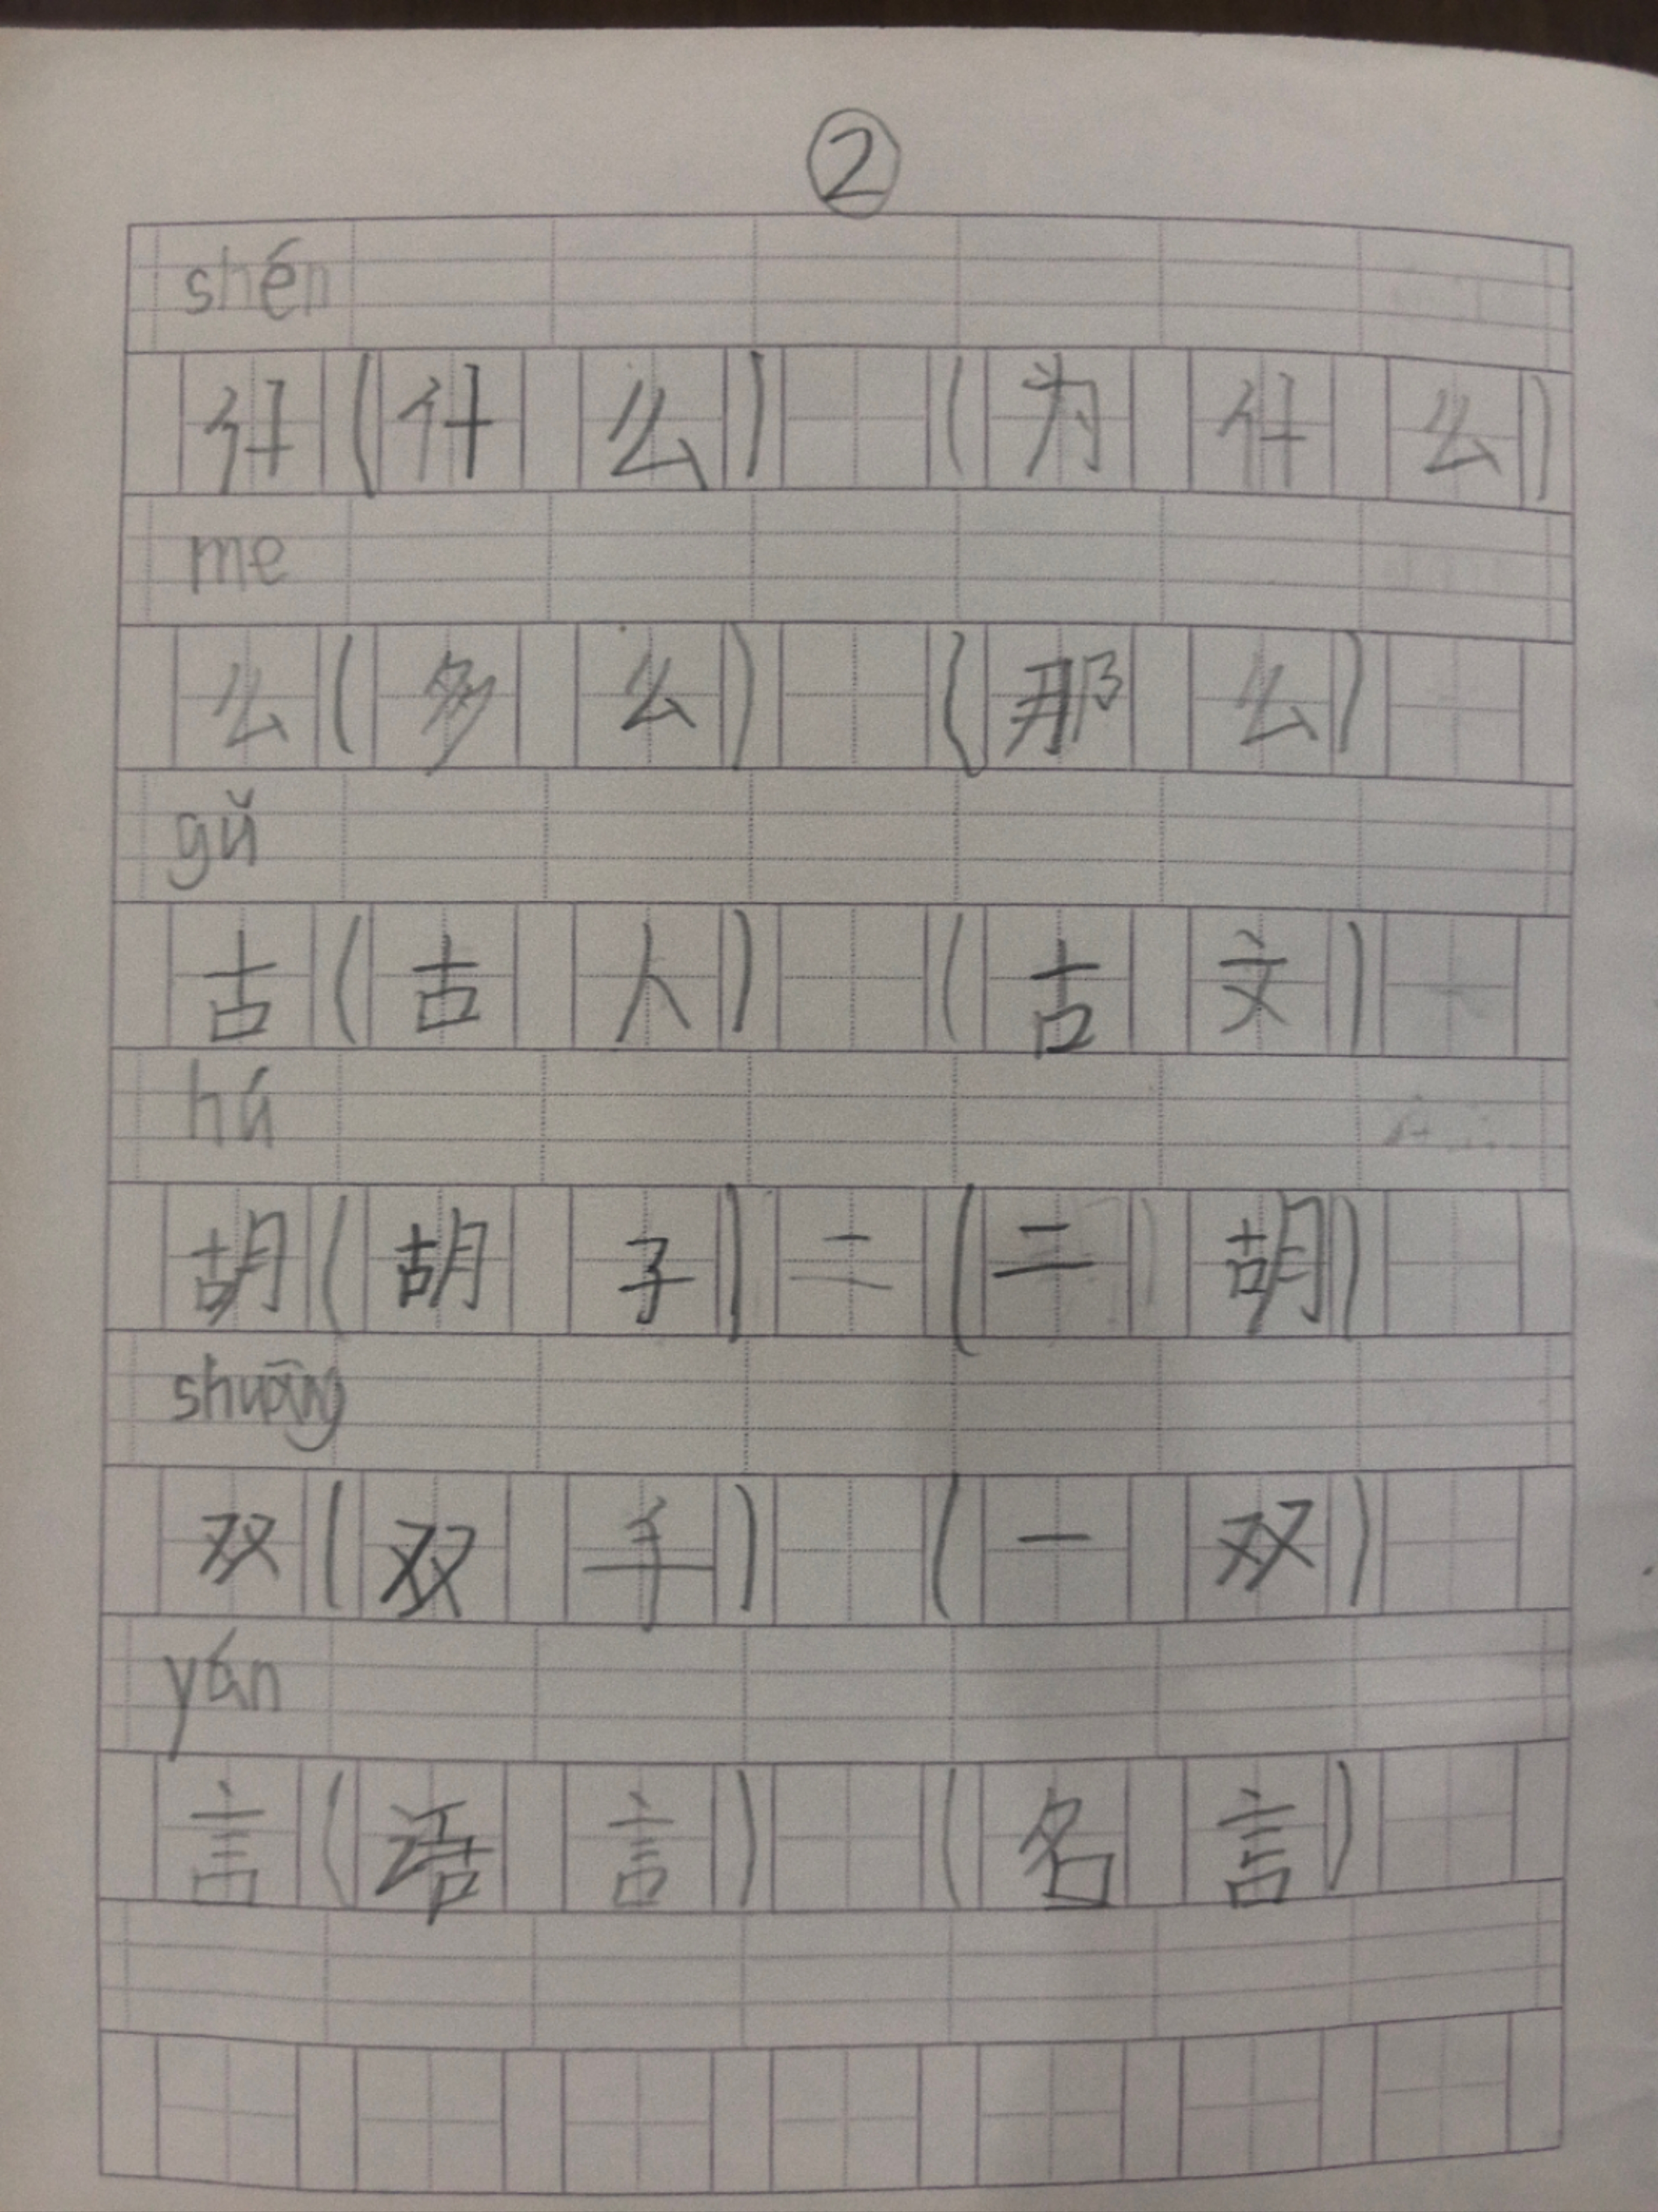 ②
shén
什(什么) (为什么)
me
么(多么) (那么)
gǔ
古(古人) (古文)
hú
胡(胡子)二(二胡)
shuāng
双(双手) (一双)
yán
言(语言) (名言)